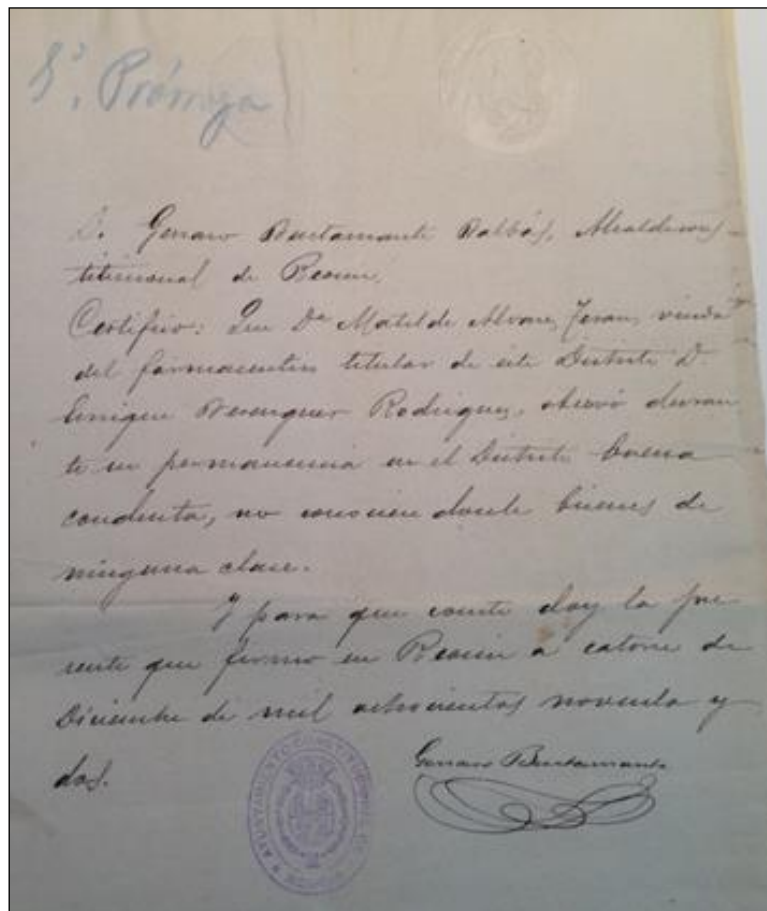 Prórroga
D. Genaro Bustamante Balbás, Alcalde cons-
titucional de Reocín,
Certifico: Que Dª Matilde Alvarez Teran, viuda
del farmaceutico titular de este Distrito D.
Enrique Berenguer Rodriguez, observó duran
te su permanencia en el Distrito buena
conducta, no conociendosele bienes de
ninguna clase.
Y para que conste doy la pre-
sente que firmo en Reocin a catorce de
Diciembre de mil ochocientos noventa y
dos.
Genaro Bustamante
AYUNTAMIENTO CONSTITUCIONAL DE